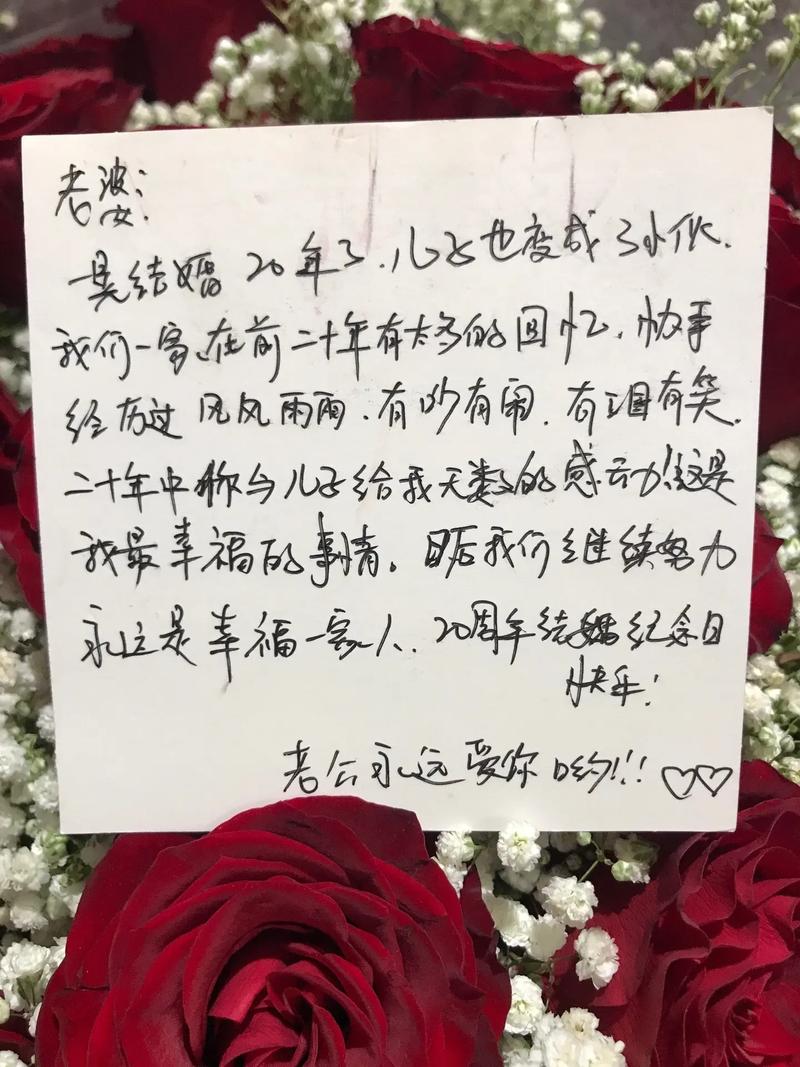 老婆：
是结婚20年了，儿子也变成了小伙，
我们一家在前二十年有太多的回忆，
经历过风风雨雨，有吵有闹，有泪有笑，
二十年中你与儿子给我无数的感动！这是
我最幸福的事情。日后我们继续努力
永远是幸福一家人，20周年结婚纪念日
快乐！
老公永远爱你哟！！！♡♡